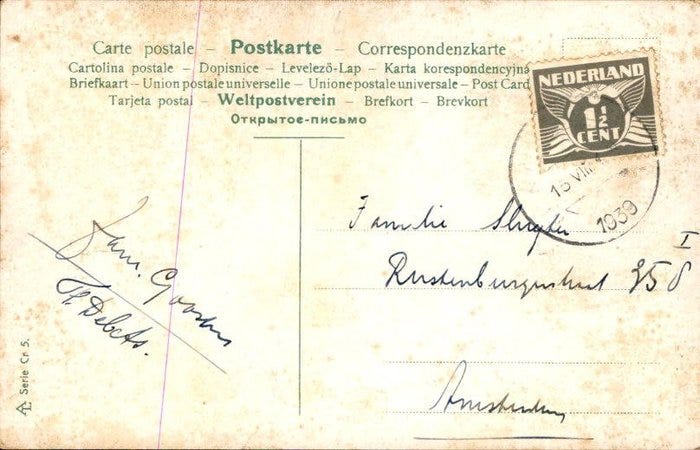 Carte postale – Postkarte – Correspondenzkarte
Cartolina postale – Dopisnice – Levelező-Lap – Karta korespondencyjna
Briefkaart – Union postale universelle – Unione postale universale – Post Card
Tarjeta postal – Weltpostverein – Brefkort – Brevkort
Открытое-письмо
NEDERLAND
1½
CENT
1939
Familie
Rustenburgerstraat 358 I
Amsterdam
Fam. Goossens
Th Debets.
Serie Cr 5.